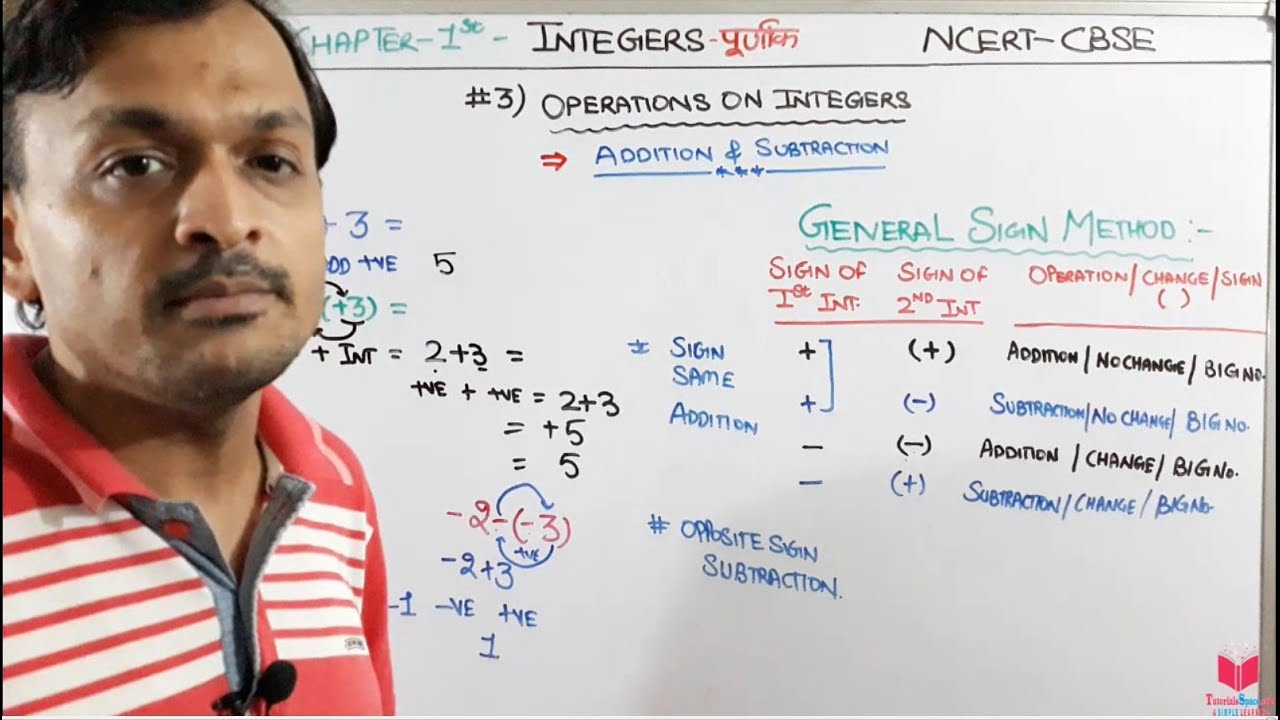 CHAPTER-1st - INTEGERS-पूर्णांक NCERT-CBSE
#3) OPERATIONS ON INTEGERS
⇒ ADDITION & SUBTRACTION
***
3 =
+VE 5
(+3) =
+ INT = 2+3 =
+VE + +VE = 2+3
= +5
= 5
-2-(-3)
+VE
-2+3
-1 -VE +VE
1
GENERAL SIGN METHOD:-
SIGIN OF 1st INT. SIGIN OF 2ND INT OPERATION/CHANGE/SIGIN ( )
* SIGIN SAME ADDITION
+ (+) ADDITION/NO CHANGE/BIG NO.
+ (-) SUBTRACTION/NO CHANGE/BIG NO.
- (-) ADDITION /CHANGE/BIG NO.
- (+) SUBTRACTION/CHANGE/BIG NO.
# OPPOSITE SIGIN
SUBTRACTION.